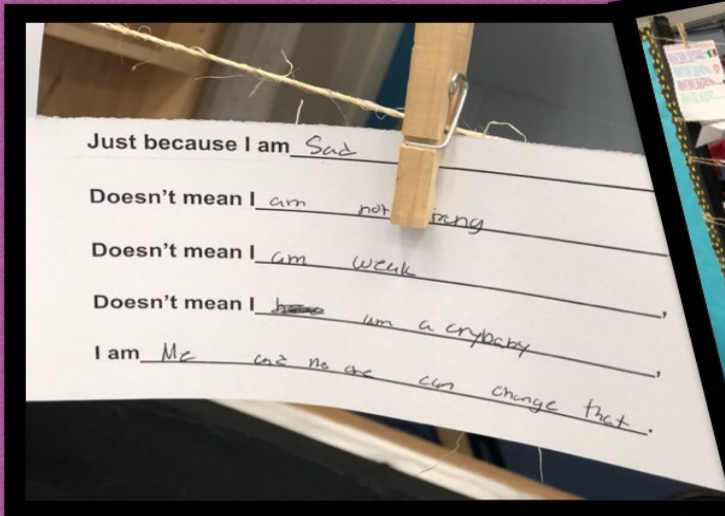 Just because I am Sad
Doesn't mean I am not
Doesn't mean I am weak,
Doesn't mean I am a crybaby,
I am Me and no one can change that.